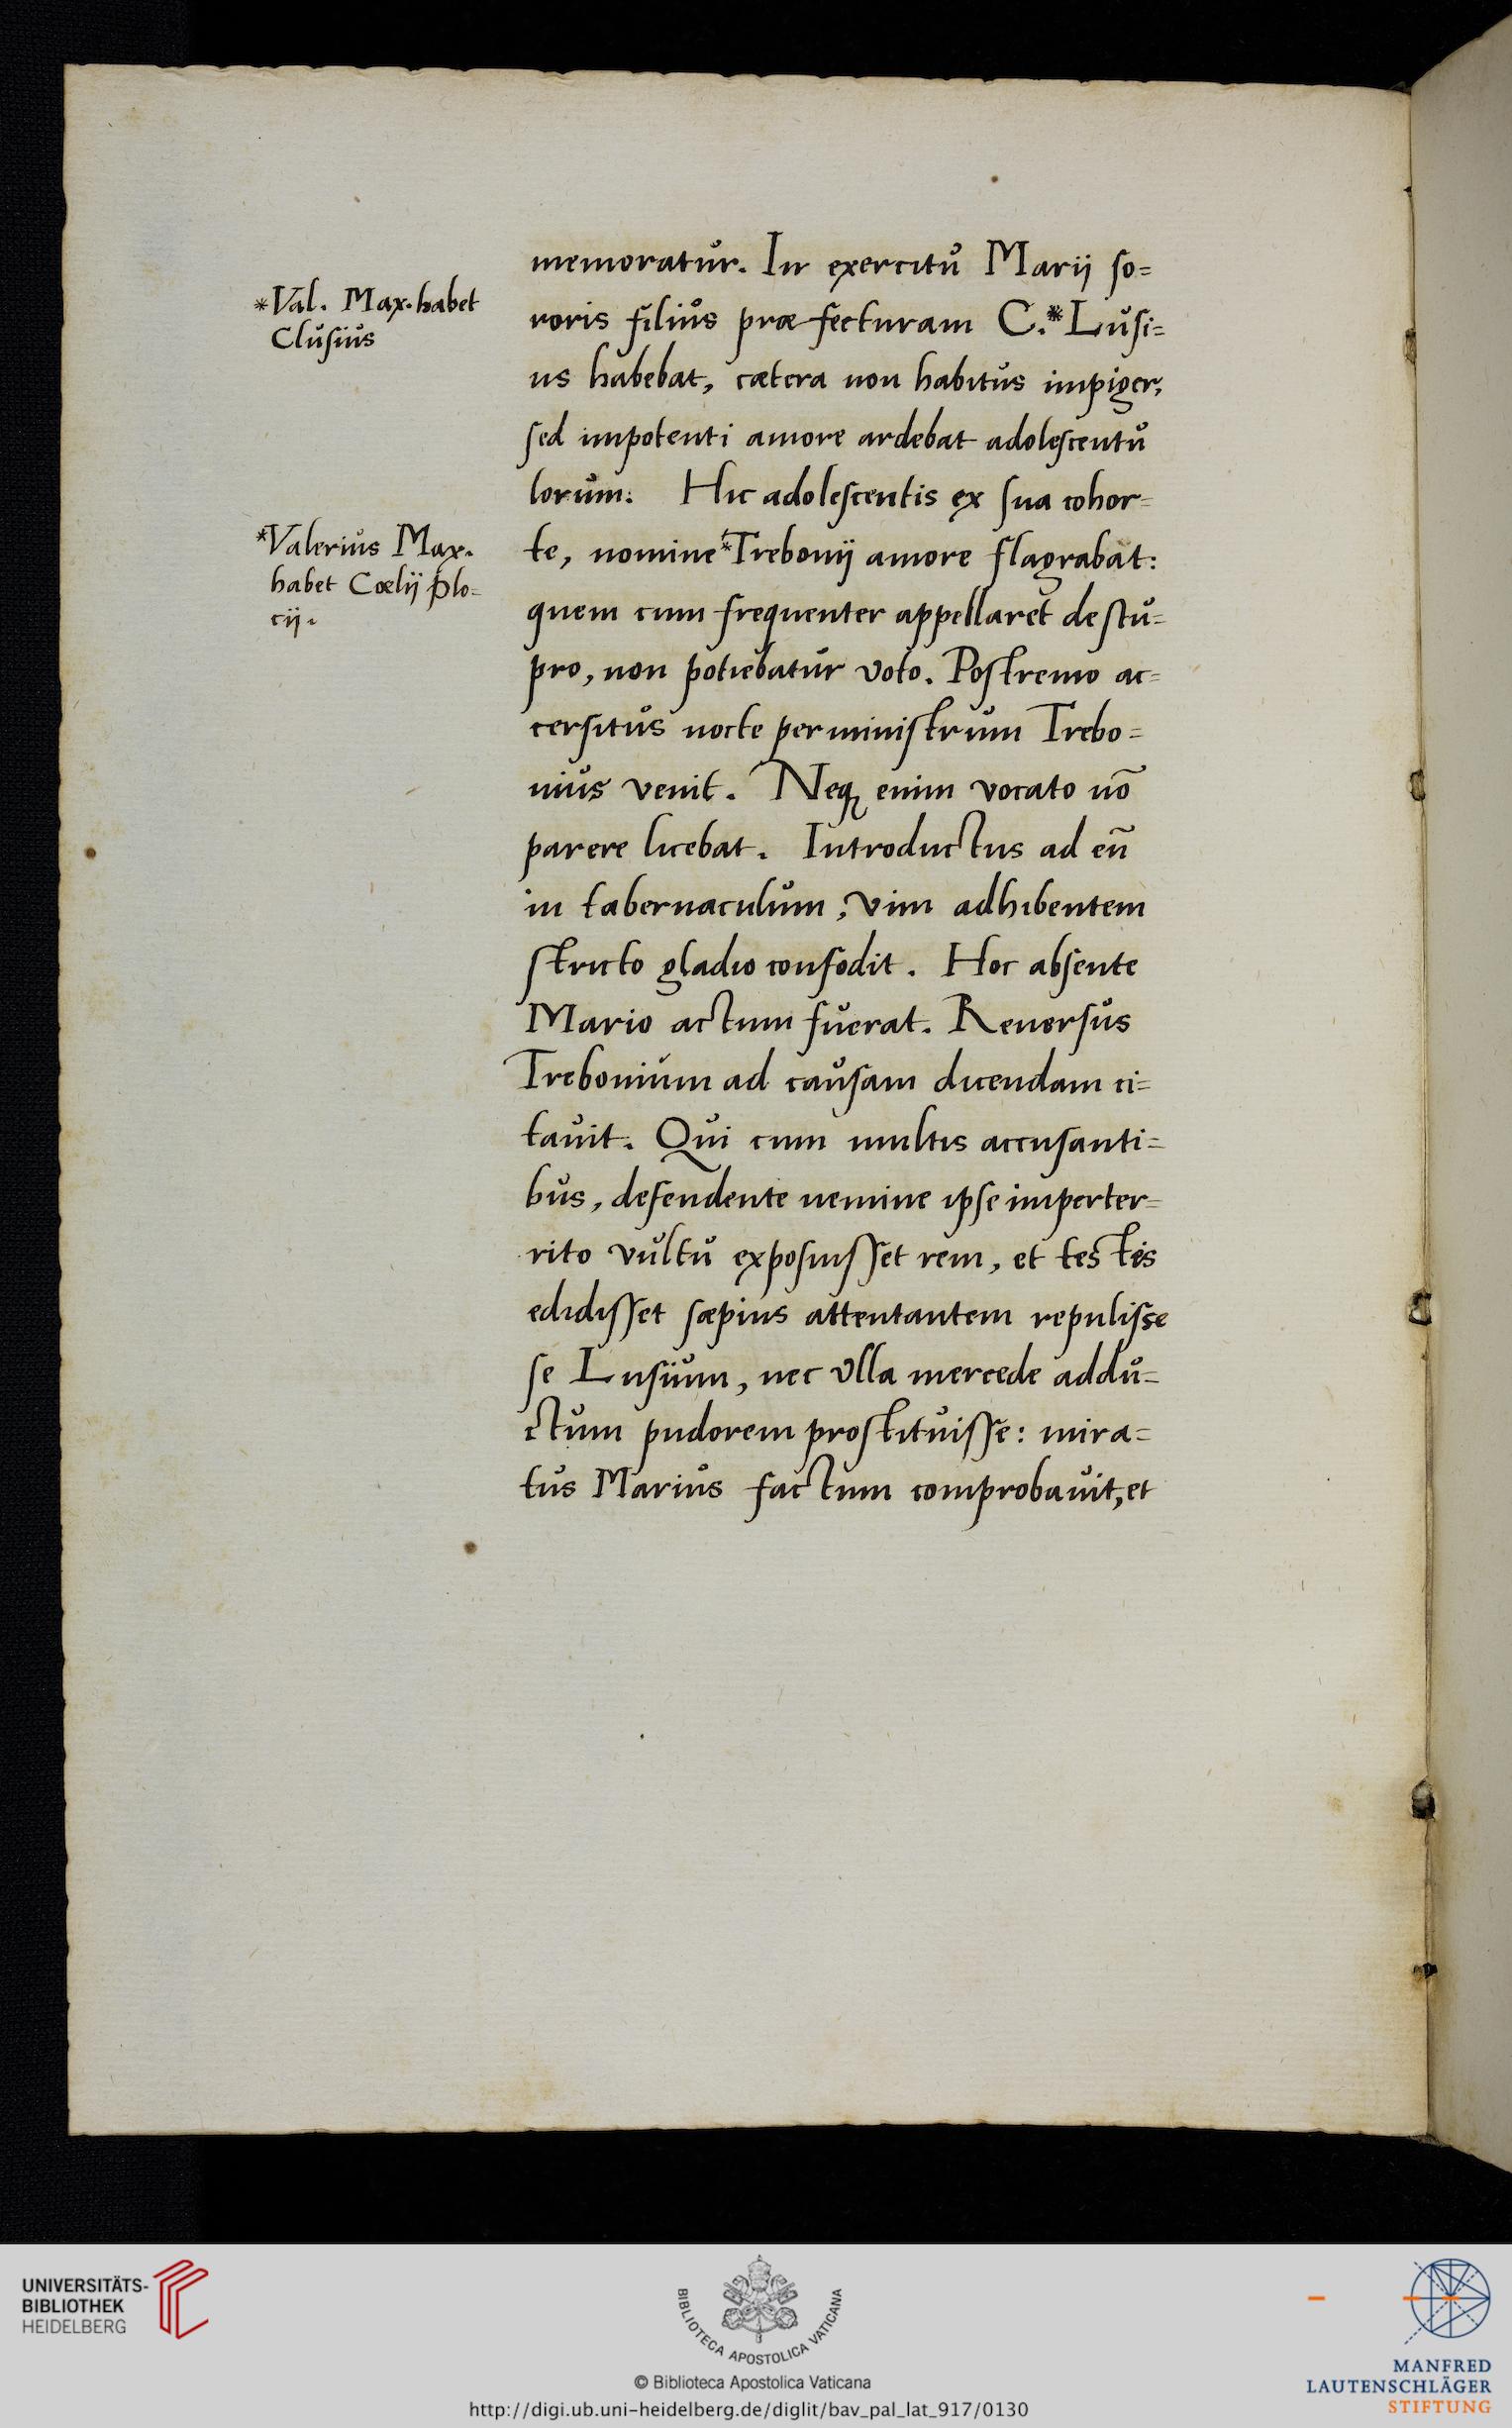 memoratur. In exercitu Marij so=
roris filius præfecturam C.* Lusi=
us habebat, cætera non habitus impiger,
sed impotenti amore ardebat adolescentu
lorum. Hic adolescentis ex sua cohor=
te, nomine *Trebonij amore flagrabat:
quem cum frequenter appellaret de stu=
pro, non potiebatur voto. Postremo ac=
cersitus nocte per ministrum Trebo=
nius venit. Neq; enim vocato nō
parere licebat. Introductus ad eū
in tabernaculum, vim adhibentem
stricto gladio confodit. Hoc absente
Mario actum fuerat. Reuersus
Trebonium ad causam dicendam ci=
tauit. Qui cum multis accusanti=
bus, defendente nemine ipse imperter=
rito vultu exposuisset rem, et testes
edidisset sæpius attentantem repulisse
se Lusium, nec vlla mercede addu=
ctum pudorem prostituisse: mira=
tus Marius factum comprobauit, et
*Val. Max. habet
Clusius
*Valerius Max.
habet Cœlij Plo=
cij.
UNIVERSITÄTS-
BIBLIOTHEK
HEIDELBERG
BIBLIOTECA APOSTOLICA VATICANA
© Biblioteca Apostolica Vaticana
http://digi.ub.uni-heidelberg.de/diglit/bav_pal_lat_917/0130
MANFRED
LAUTENSCHLÄGER
STIFTUNG